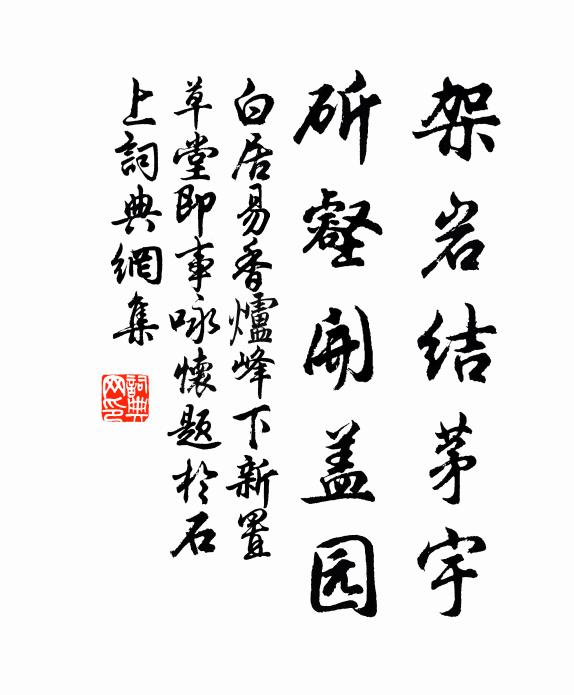 架岩结茅宇
斫壑開盖园
白居易香爐峰下新置
草堂即事咏懷題於石
上詞典網集
詞典网印